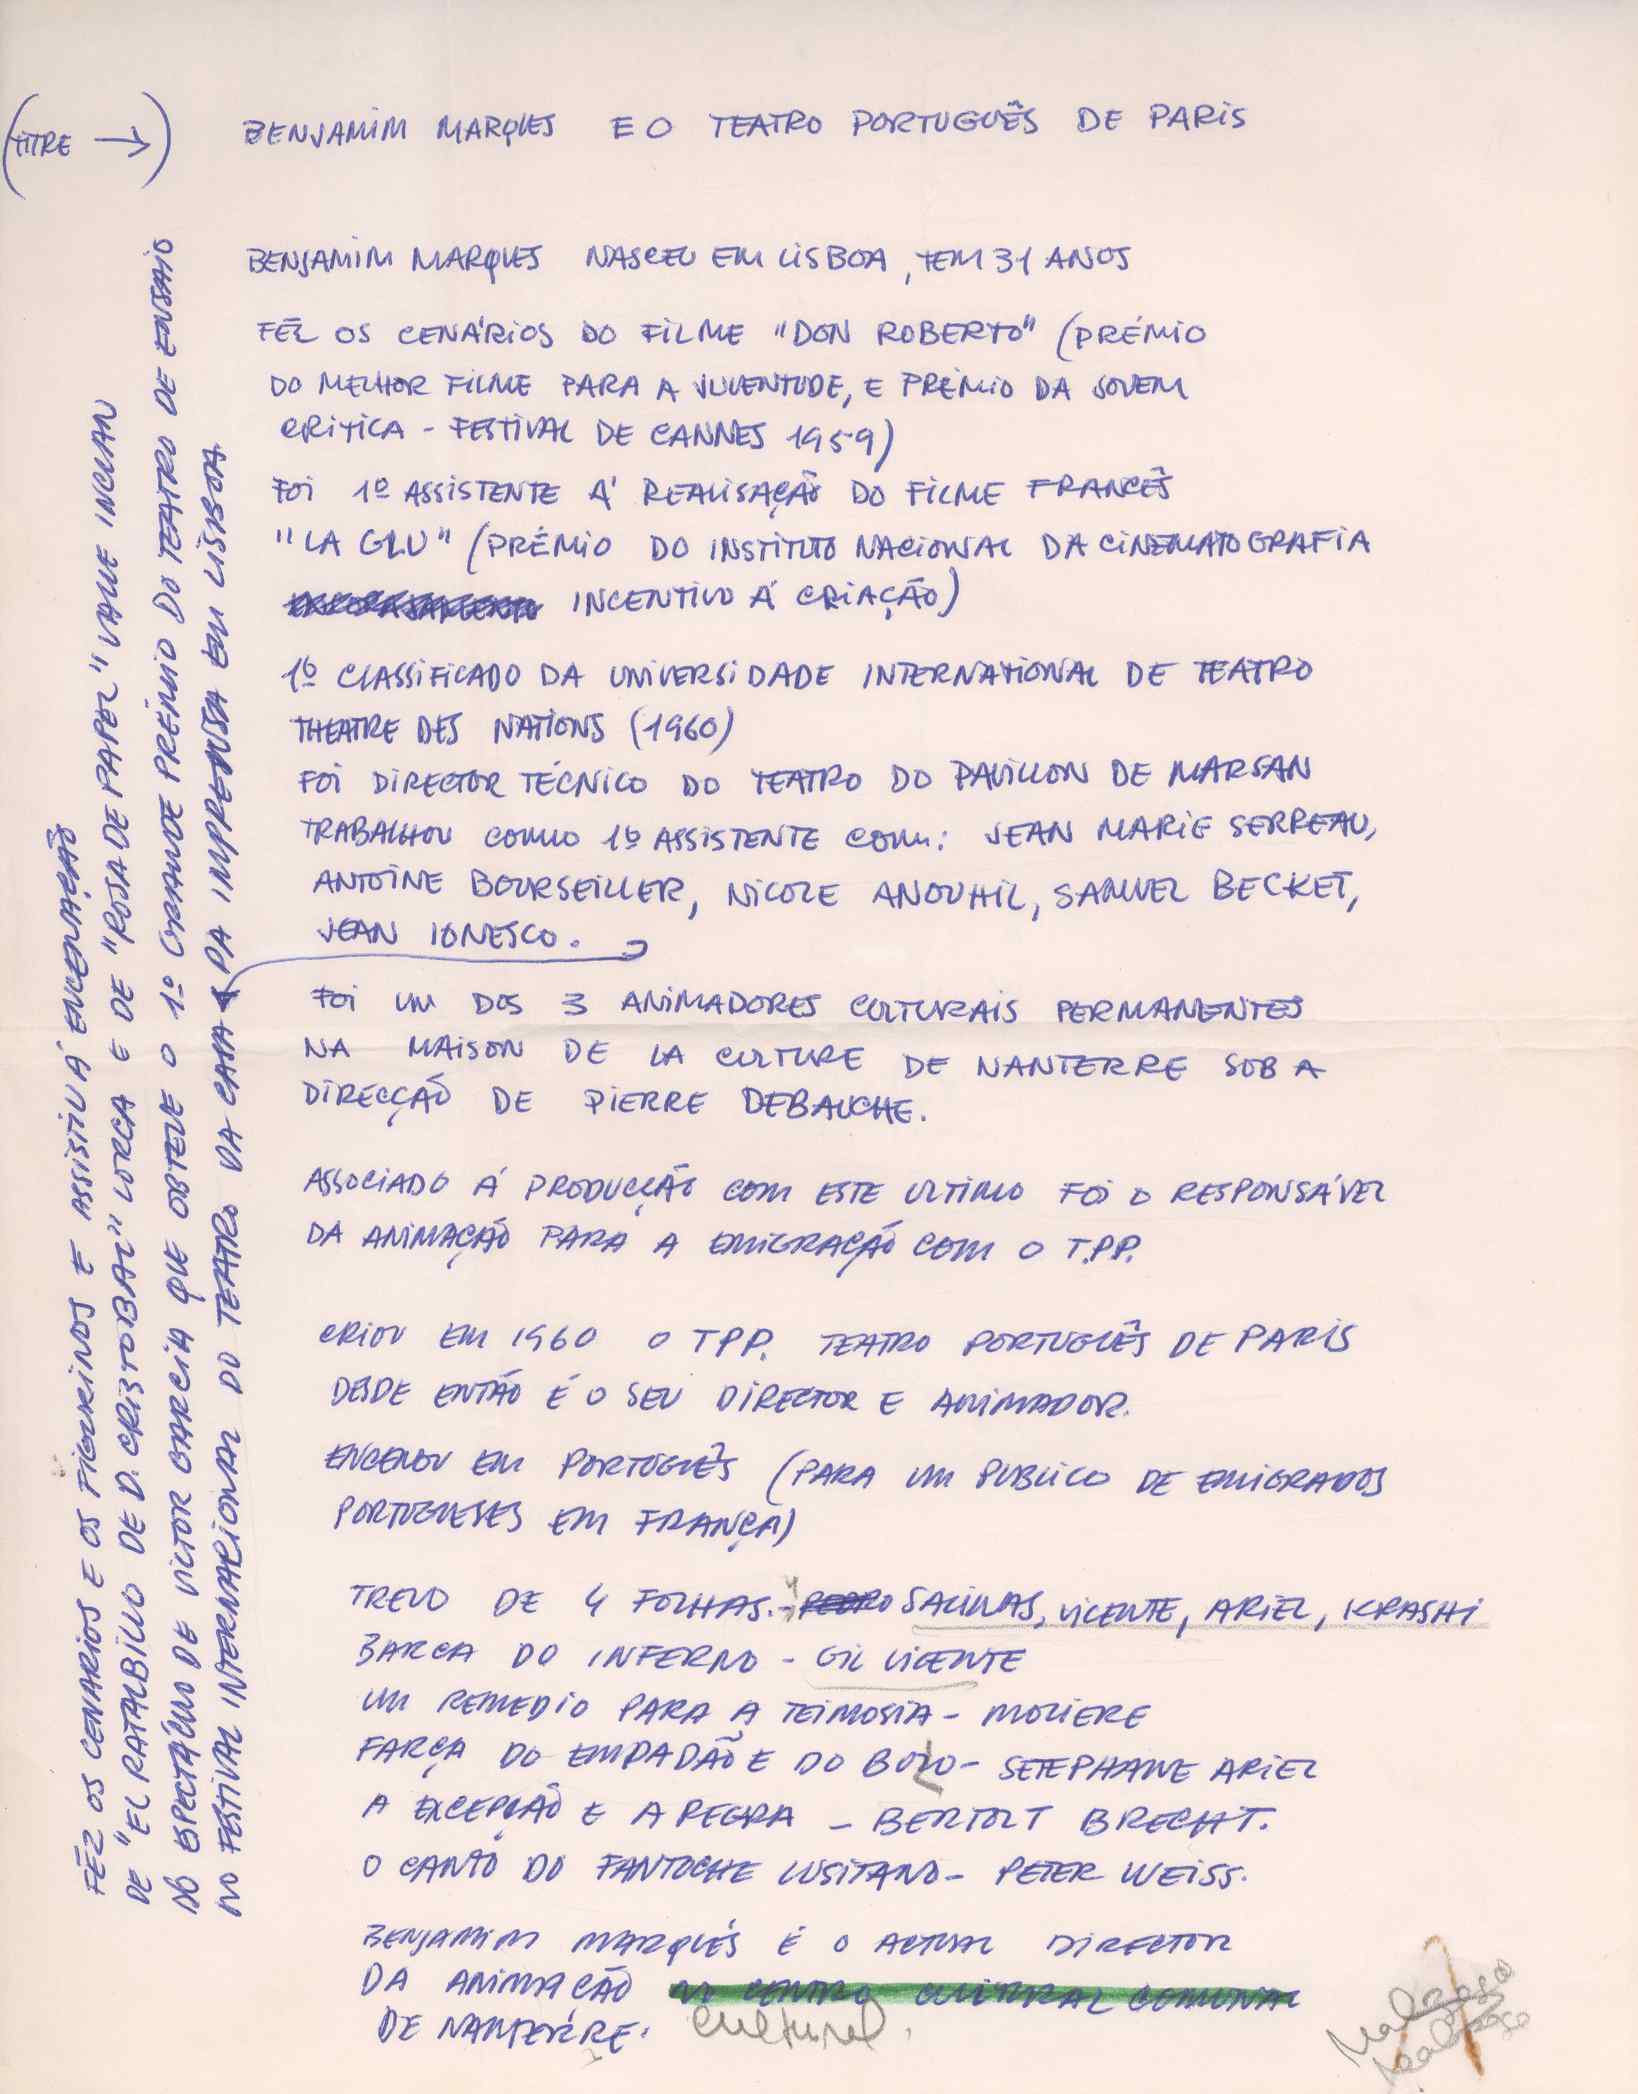 (TITRE →) BENJAMIM MARQUES E O TEATRO PORTUGUÊS DE PARIS
BENJAMIM MARQUES NASCEU EM LISBOA, TEM 31 ANOS
FÊZ OS CENÁRIOS DO FILME "DON ROBERTO" (PRÉMIO
DO MELHOR FILME PARA A JUVENTUDE, E PRÉMIO DA JOVEM
CRITICA - FESTIVAL DE CANNES 1959)
FOI 1º ASSISTENTE Á REALISAÇÃO DO FILME FRANCÊS
"LA GLU" (PRÉMIO DO INSTITUTO NACIONAL DA CINEMATOGRAFIA
INCENTIVO Á CRIAÇÃO)
1º CLASSIFICADO DA UNIVERSIDADE INTERNATIONAL DE TEATRO
THEATRE DES NATIONS (1960)
FOI DIRECTOR TÉCNICO DO TEATRO DO PAVILLON DE MARSAN
TRABALHOU COMO 1º ASSISTENTE COM: JEAN MARIE SERREAU,
ANTOINE BOURSEILLER, NICOLE ANOUHIL, SAMUEL BECKET,
JEAN IONESCO.
FOI UM DOS 3 ANIMADORES CULTURAIS PERMANENTES
NA MAISON DE LA CULTURE DE NANTERRE SOB A
DIRECÇÃO DE PIERRE DEBAUCHE.
ASSOCIADO Á PRODUCÇÃO COM ESTE ULTIMO FOI O RESPONSÁVEL
DA ANIMAÇÃO PARA A EMIGRAÇÃO COM O T.P.P.
CRIOU EM 1960 O TPP. TEATRO PORTUGUÊS DE PARIS
DESDE ENTÃO É O SEU DIRECTOR E ANIMADOR.
ENCENOU EM PORTUGUÊS (PARA UM PUBLICO DE EMIGRADOS
PORTUGUESES EM FRANÇA)
TREVO DE 4 FOLHAS.- PEDRO SALINAS, VICENTE, ARIEL, KRASHI
BARCA DO INFERNO - GIL VICENTE
UM REMEDIO PARA A TEIMOSIA - MOLIERE
FARÇA DO EMPADÃO E DO BOLO - SETEPHANE ARIEL
A EXCEPÇÃO E A REGRA - BERTOLT BRECHT.
O CANTO DO FANTOCHE LUSITANO - PETER WEISS.
BENJAMIM MARQUÉS É O ACTUAL DIRECTOR
DA ANIMAÇÃO NO CENTRO CULTURAL COMUNAL
DE NANTERRE. Cultural.
FÊZ OS CENARIOS E OS FIGURINOS E ASSISTIU Á ENCENAÇÃO
DE "EL RATABILLO DE D. CRISTOBAL" LORCA E DE "ROSA DE PAPEL" VALLE INCLAN
DO ESPECTÁCULO DE VICTOR GARCIA QUE OBTEVE O 1º GRANDE PRÉMIO DO TEATRO DE ENSAIO
NO FESTIVAL INTERNACIONAL DO TEATRO NA CASA DA IMPRENSA EM LISBOA.